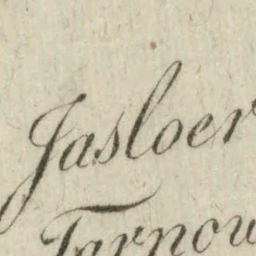 Jasloer
Tarnow